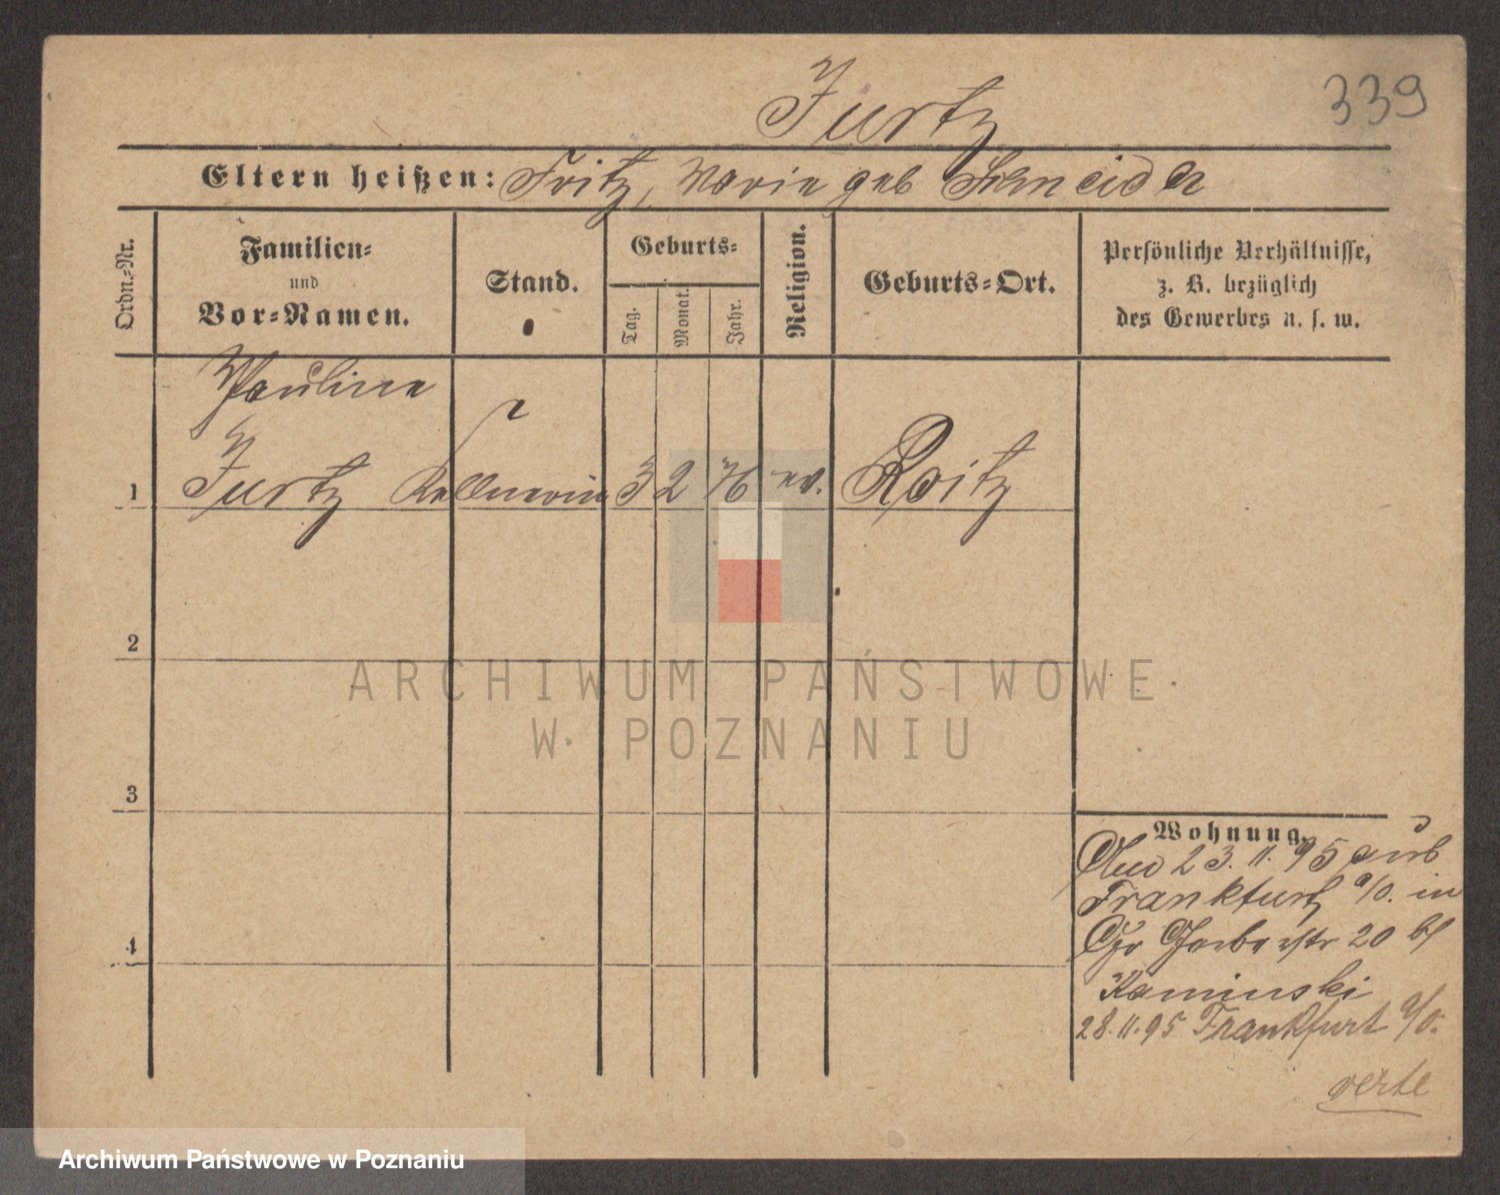 339
Jurtz
Eltern heißen: Fritz, Marie geb Schneider
Ordn.-Nr.
Familien-
und
Vor-Namen.
Stand.
Geburts-
Tag.
Monat.
Jahr.
Religion.
Geburts-Ort.
Persönliche Verhältnisse,
z. B. bezüglich
des Gewerbes u. s. w.
Pauline
1 Jurtz Kellnerin 3 2 76 ev. Roitz
2
3
4
Wohnung.
23. 11. 95 aus
Frankfurt a/O. in
20 bei
Kaminski
28.11.95 Frankfurt a/O.
verte
ARCHIWUM PAŃSTWOWE
W POZNANIU
Archiwum Państwowe w Poznaniu